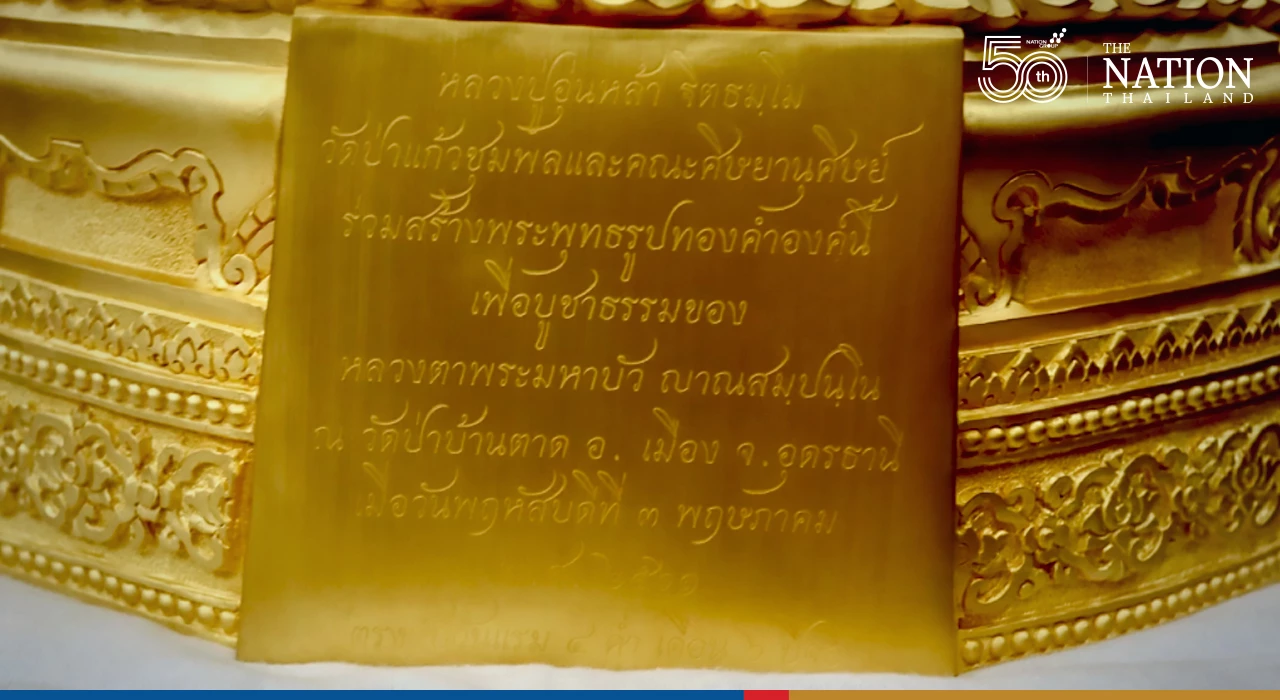 หลวงปู่อุ่นหล้า ฐิตธมฺโม
วัดป่าแก้วชุมพลและคณะศิษยานุศิษย์
ร่วมสร้างพระพุทธรูปทองคำองค์นี้
เพื่อบูชาธรรมของ
หลวงตาพระมหาบัว ญาณสมฺปนฺโน
ณ วัดป่าบ้านตาด อ. เมือง จ.อุดรธานี
เมื่อวันพฤหัสบดีที่ ๓ พฤษภาคม
ตรง แรม ๔ ค่ำ เดือน
50th
NATION GROUP
THE
NATION
THAILAND